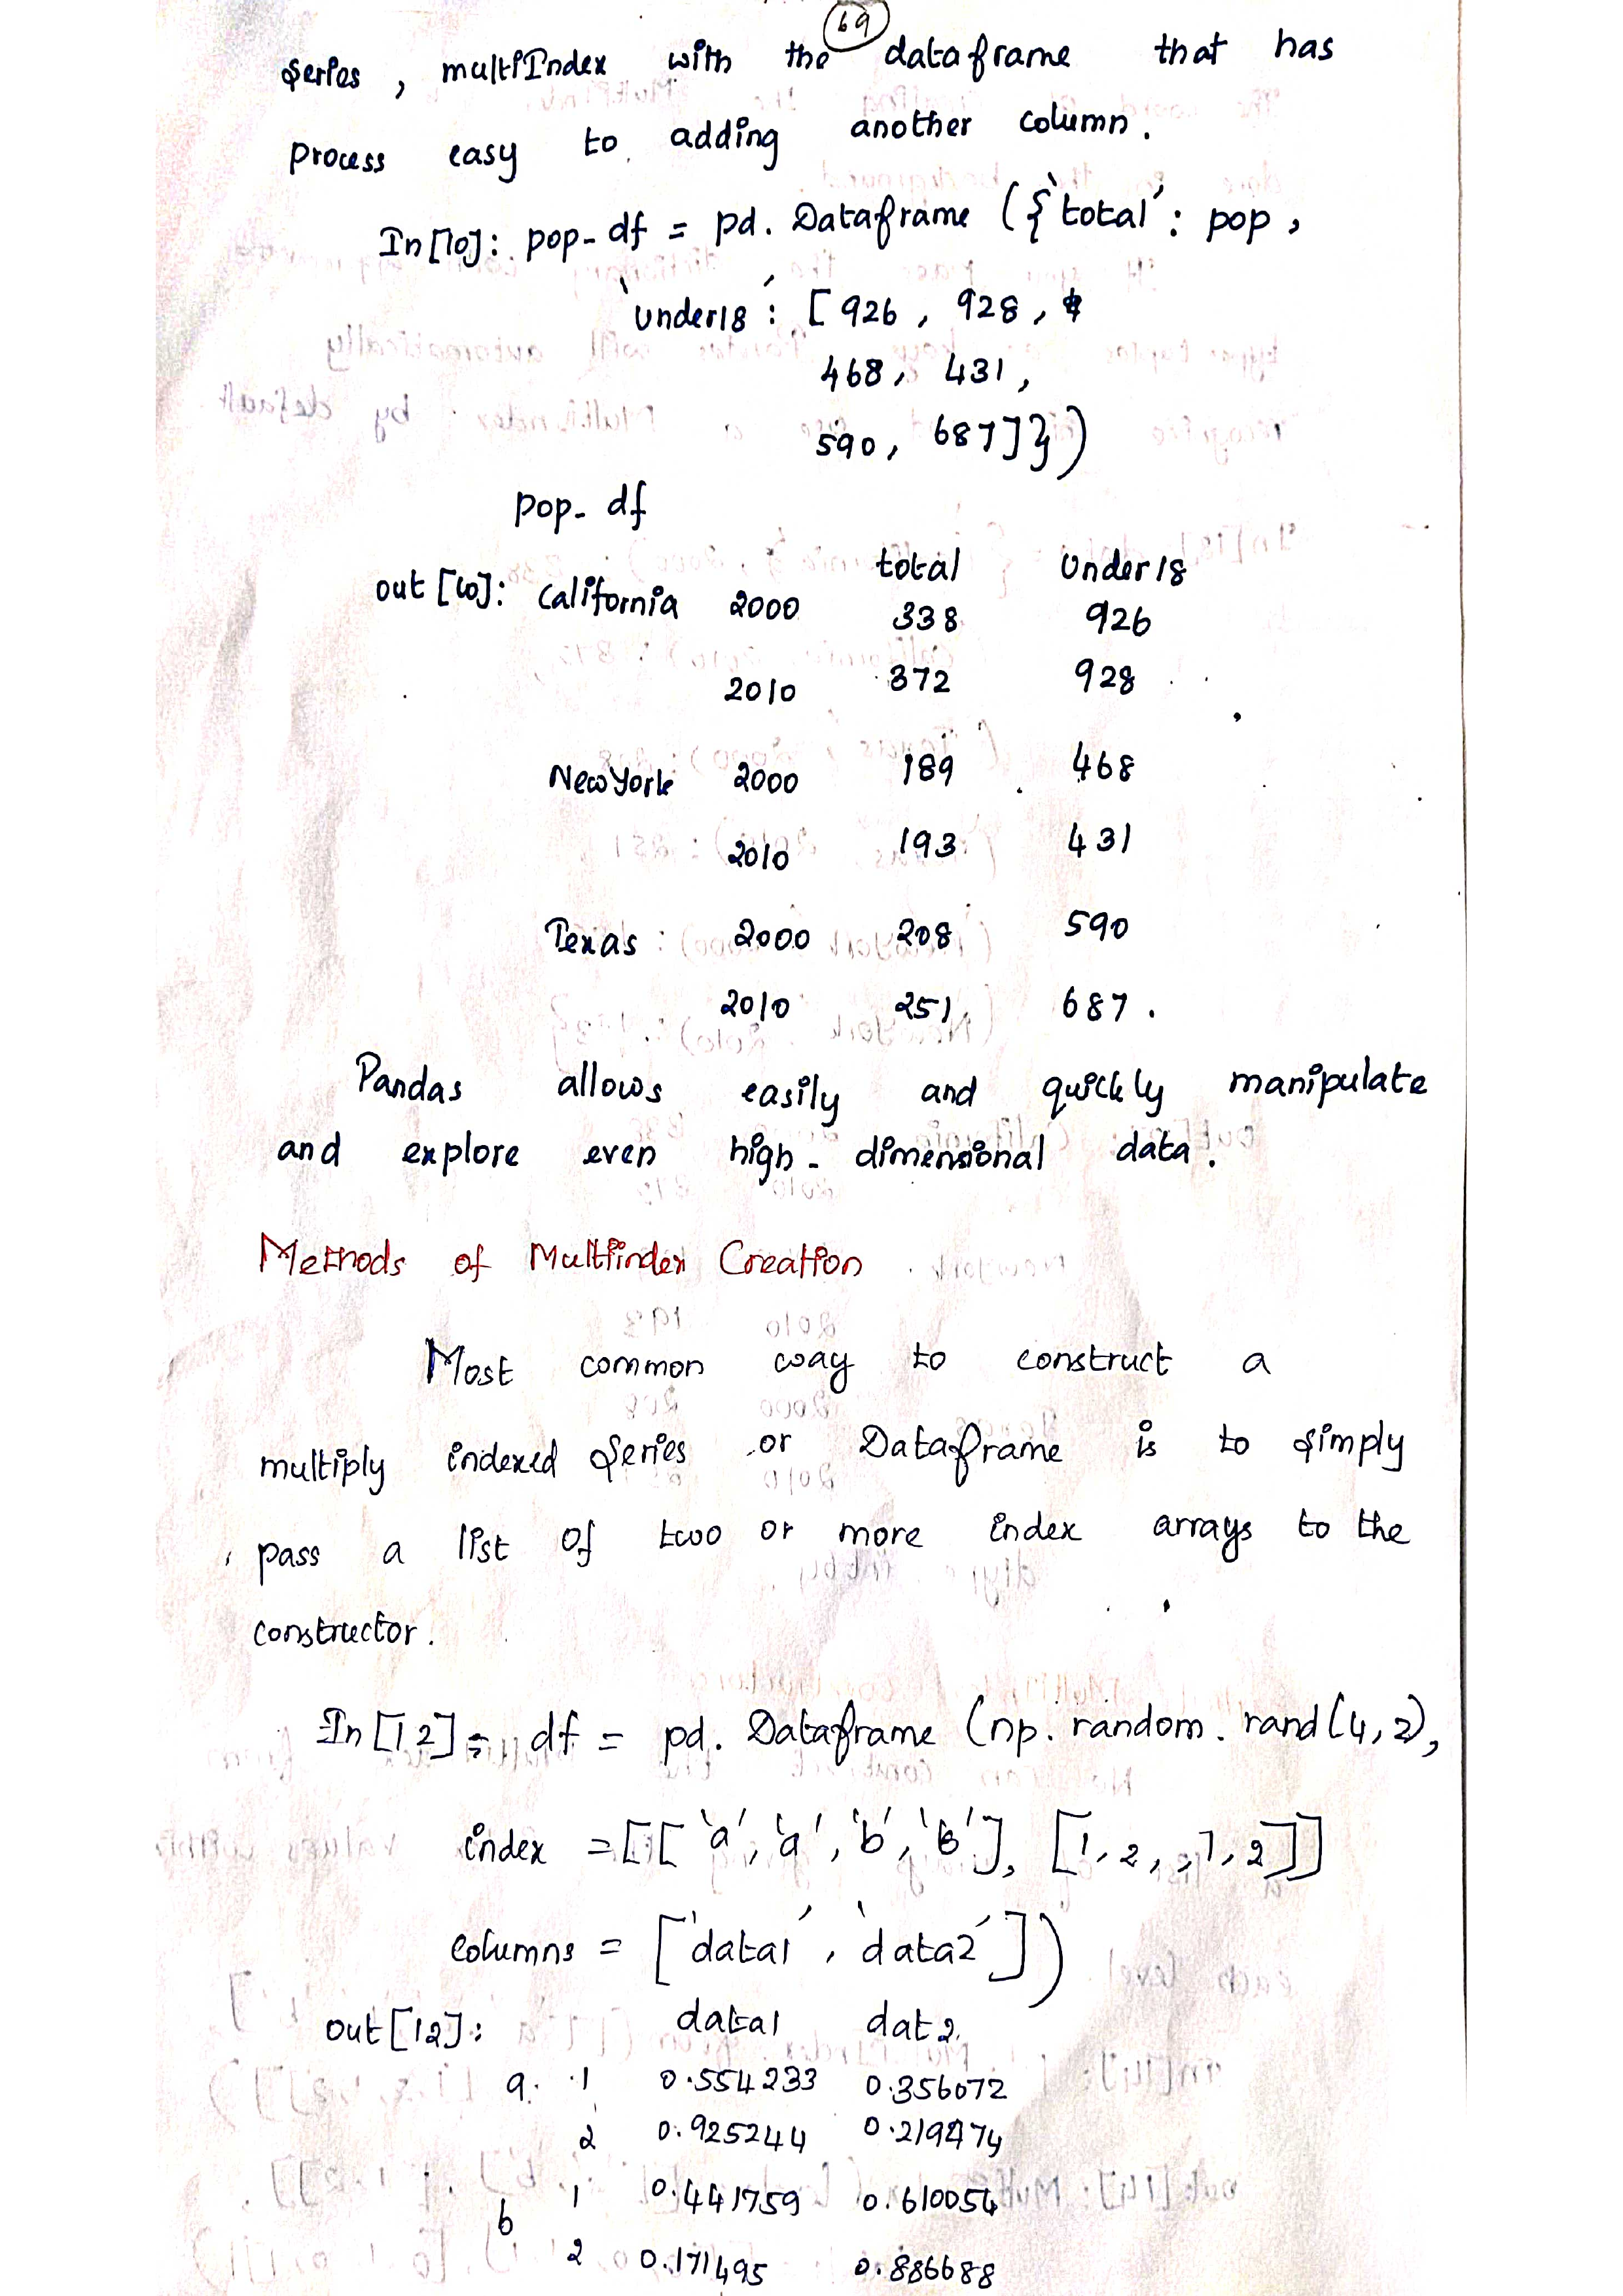 69
series, multiIndex with the dataframe that has
process easy to adding another column.
In[10]: pop-df = pd. Dataframe ({'total': pop,
'under18': [926, 928,
468, 431,
590, 687]})
pop-df
total Under18
out[10]: California 2000 338 926
2010 372 928
NewYork 2000 189 468
2010 193 431
Texas 2000 208 590
2010 251 687.
Pandas allows easily and quickly manipulate
and explore even high-dimensional data.
Methods of Multiindex Creation
Most common way to construct a
multiply indexed Series or Dataframe is to simply
pass a list of two or more index arrays to the
constructor.
In[12]: df = pd. Dataframe (np. random. rand(4,2),
index = [['a', 'a', 'b', 'b'], [1, 2, , 1, 2]]
columns = ['data1', 'data2'])
out[12]: data1 dat2
a 1 0.554233 0.356072
2 0.925244 0.219474
b 1 0.441759 0.610054
2 0.171495 0.886688